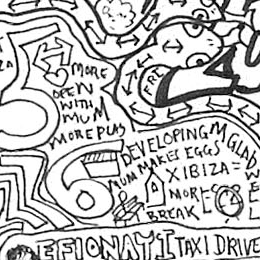 ZA
MORE
OPEN
WITH
MUM
MORE PLAS
FRE
DEVELOPING M GLAD
MUM MAKES EGGS
X IBIZA =
MORE
BREAK
6
EFIONAYI TAXI DRIVE